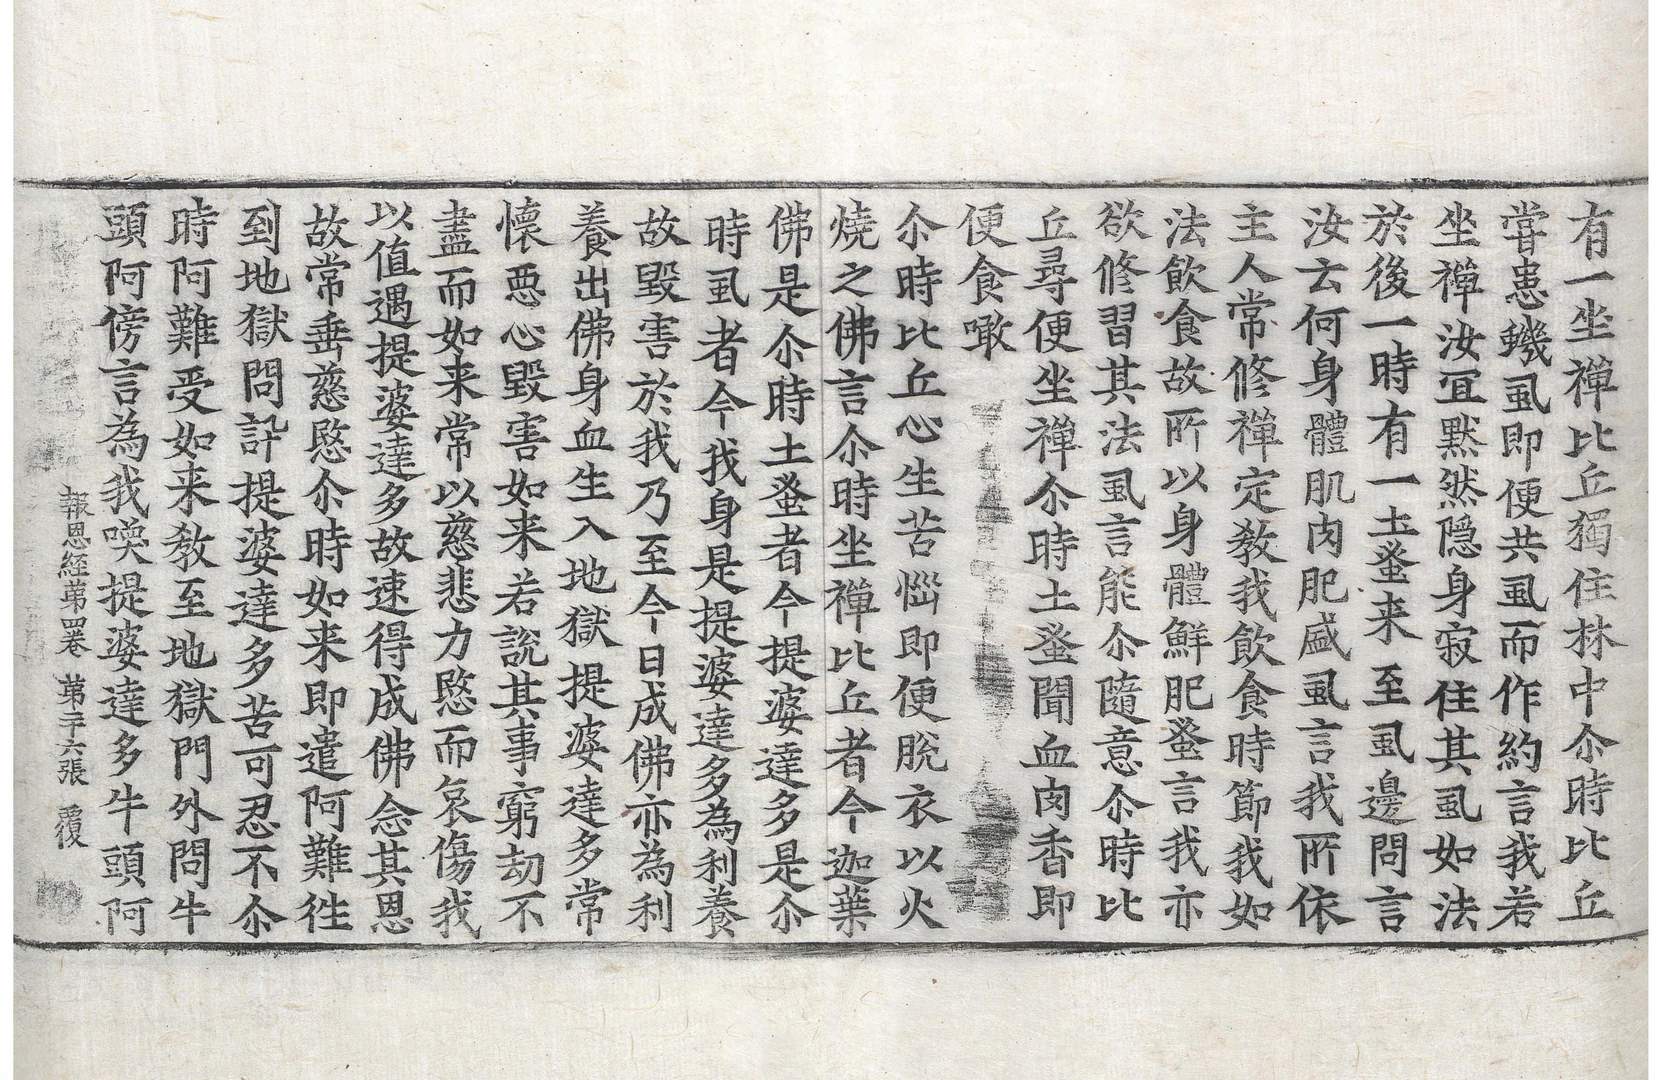 有一坐禪比丘獨住林中尒時比丘
甞患蟣虱即便共虱而作約言我若
坐禪汝冝黙然隱身寂住其虱如法
於後一時有一土蚤来至虱邊問言
汝云何身體肌肉肥盛虱言我所依
主人常修禪定教我飲食時節我如
法飲食故所以身體鮮肥蚤言我亦
欲修習其法虱言能尒隨意尒時比
丘尋便坐禪尒時土蚤聞血肉香即
便食噉
尒時比丘心生苦惱即便脫衣以火
燒之佛言尒時坐禪比丘者今迦葉
佛是尒時土蚤者今提婆達多是尒
時虱者今我身是提婆達多為利養
故毀害於我乃至今日成佛亦為利
養出佛身血生入地獄提婆達多常
懷惡心毀害如来若說其事窮劫不
盡而如来常以慈悲力愍而哀傷我
以值遇提婆達多故速得成佛念其恩
故常垂慈愍尒時如来即遣阿難往
到地獄問訊提婆達多苦可忍不尒
時阿難受如来教至地獄門外問牛
頭阿傍言為我喚提婆達多牛頭阿
報恩經第四卷 第二十六張 覆